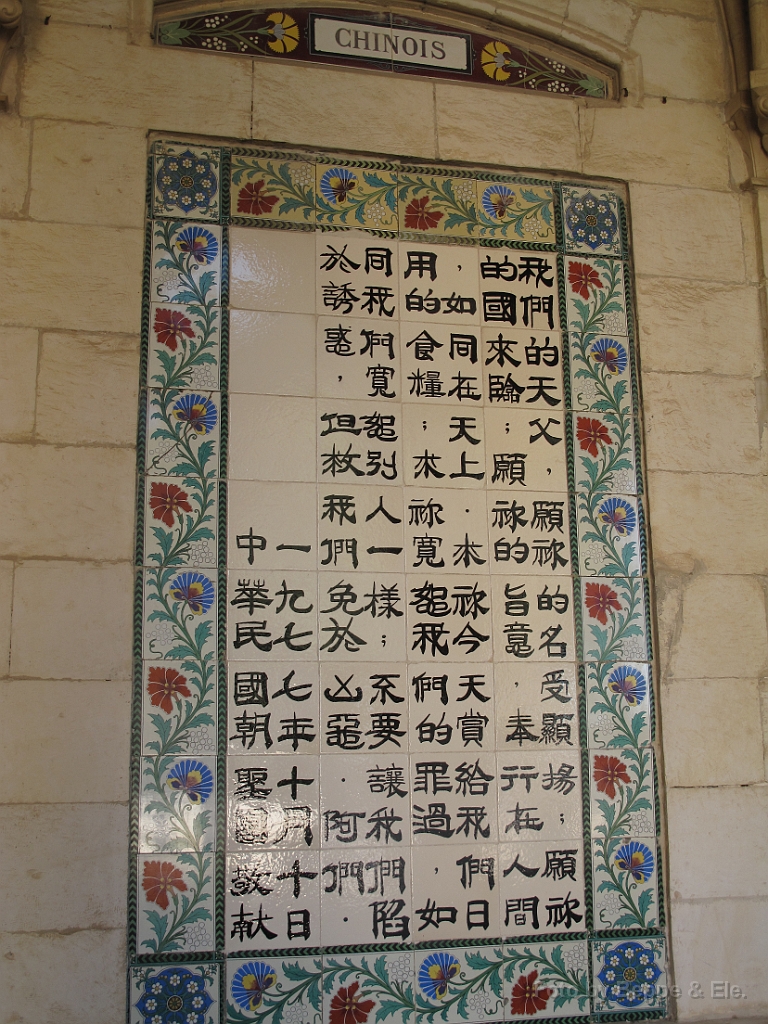 CHINOIS
我們的天父，願祢的名受顯揚；願祢
的國來臨；願祢的旨意，奉行在人間
，如同在天上．求祢今天賞給我們日
用的食糧；求祢寬恕我們的罪過，如
同我們寬恕別人一樣；不要讓我們陷
於誘惑，但救我們免於凶惡．阿們．
一九七七年十月十日
中華民國朝聖團敬献
Photo by Beppe & Ele.